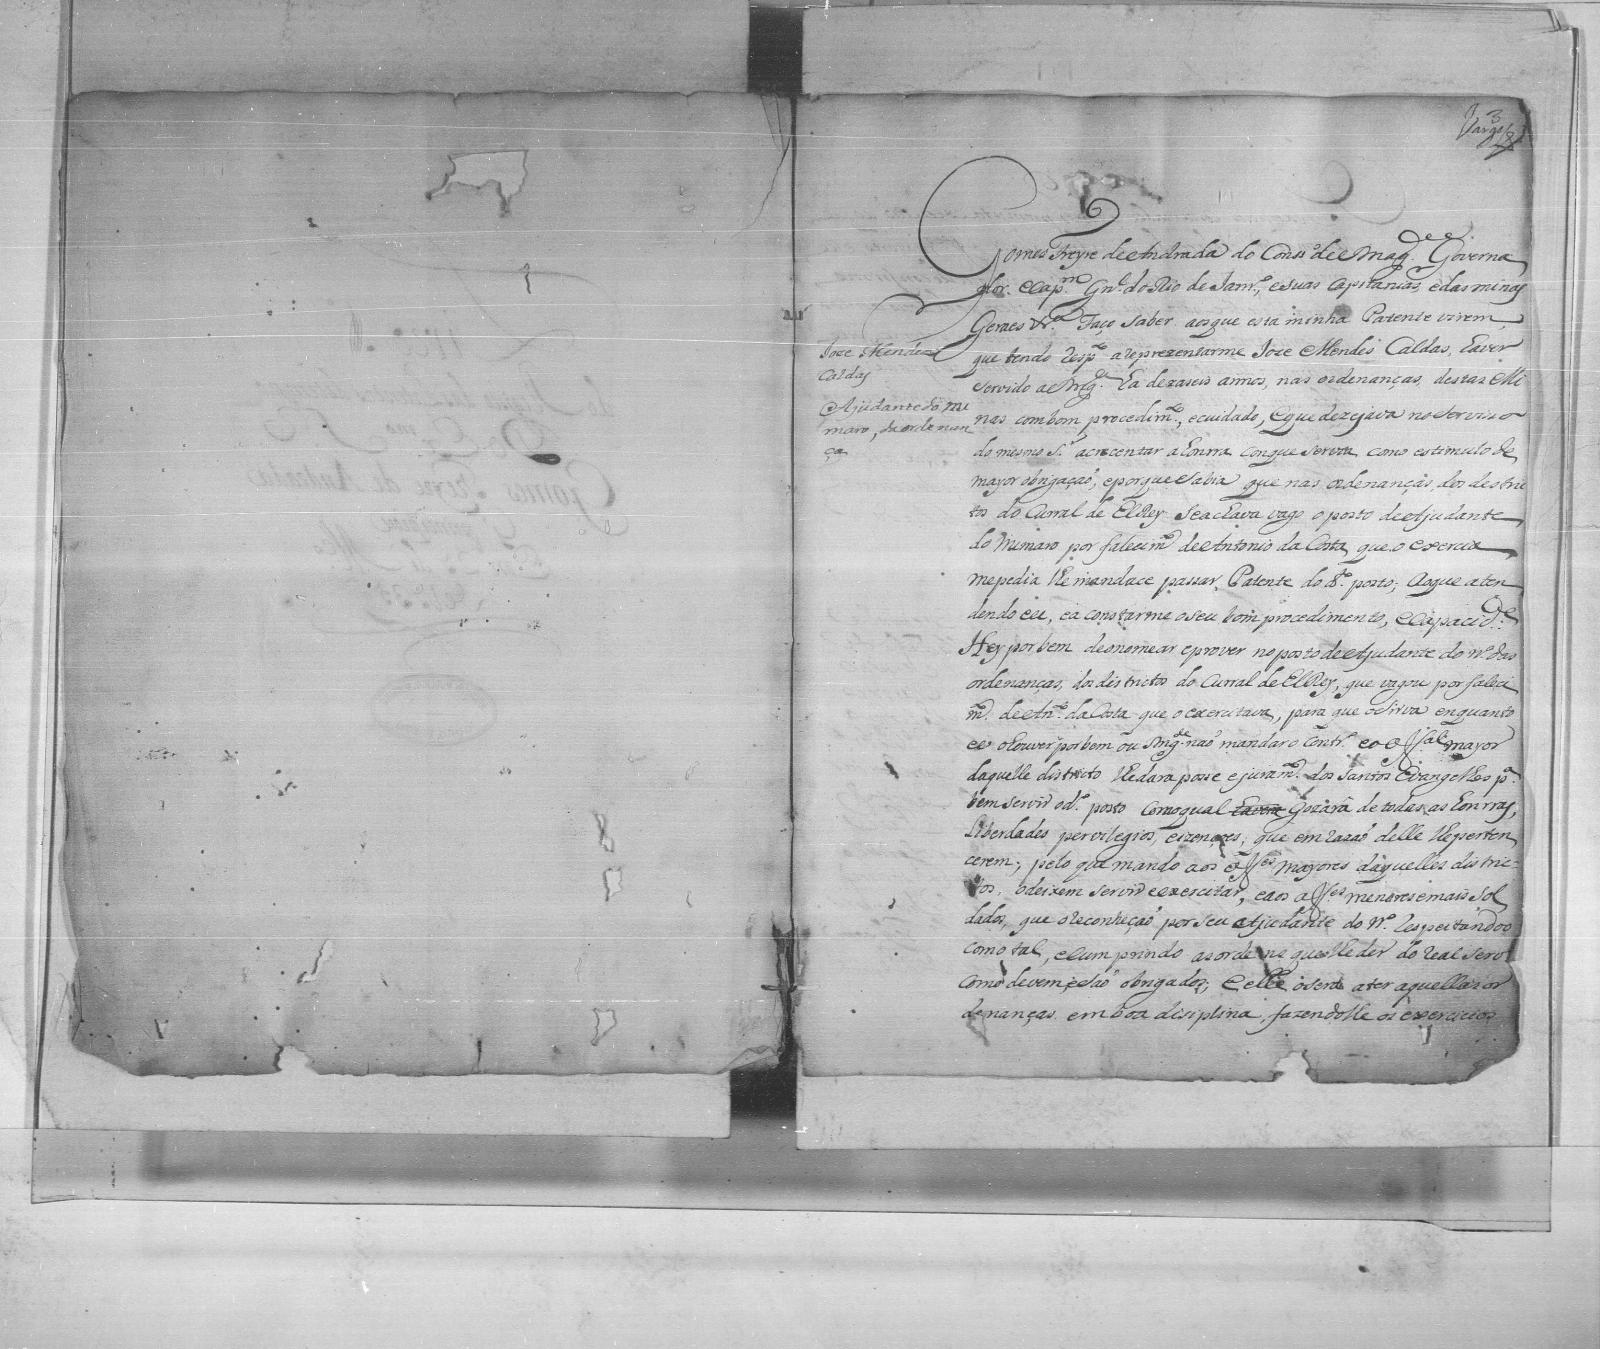 3
Vargas
Gomes Freyre de Andrada do Cons.º de S Mag.de Governa
dor. e Cap.m Gn.l do Rio de Janr.º, e suas Capitanias, e das minas
Geraes &.ª Faço saber aos que esta minha Patente virem,
que tendo resp.to a reprezentarme Joze Mendes Caldas, haver
servido a S Mg.de ha dezaseis annos, nas ordenanças, destas Mi
nas com bom procedim.to, e cuidado, e que dezejava no serviso
do mesmo S.r acrecentar a honrra com que servia como estimulo de
mayor obrigação, e porque sabia que nas ordenanças, dos destric
tos do Curral de ElRey se achava vago o posto de Ajudante
do Numaro por falecim.to de Antonio da Costa que o exercia
me pedia lhe mandace passar, Patente do d.to posto; Ao que aten
dendo eu, e a constarme o seu bom procedimento, e capacid.e
Hey por bem de o nomear e prover no posto de Ajudante do N.º das
ordenanças, dos districtos do Curral de ElRey, que vagou por faleci
m.to de Ant.º da Costa que o exercitava, para que o sirva enquanto
eu o houver por bem ou S Mg.de não mandar o Contr.º e o Off.al mayor
daquelle districto lhe dara posse e juram.to dos Santos Evangelhos p.ª
bem servir o d.to posto com o qual havera Gozará de todas, as honrras,
Liberdades pervilegios, e izenções, que em razaõ delle lhe perten
cerem; pelo que mando aos Off.es mayores daquelles distric-
tos, o deixem servir e exercitar, e aos Off.es menores e mais sol
dados, que o reconheção por seu Ajudante do N.º respeitandoo
como tal, e cumprindo as ordens que lhe der do real serv.º
como devem, e são obrigados; e elle o será a ter aquellas or
denanças em boa disiplina, fazendolhe os exercicios
Joze Mendes
Caldas
Ajudante do nu
maro, da ordenan
ça